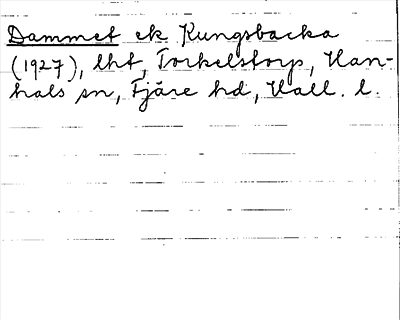 Dammet ek Kungsbacka
(1927), lht, Torkelstorp, Han-
hals sn, Fjäre hd, Hall. l.